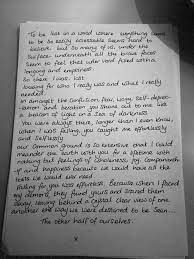 To be lost in a world where everything seems
to be so easily accessible seems hard to
believe but so many of us, under the
surface underneath all the brave faces
Seem to feel that inner void filled with a
longing and emptiness.
So there I was, lost
longing for who I really was and what I really
needed.
In amongst the confusion, fear, worry, self-depre-
cation and boredom you shone out to me like
a beacon of light in a Sea of darkness.
You were always there, longer than I even knew,
when I was falling, you caught me effortlessly
and Selflessly
Our common ground is extensive that I could
meander the earth with you for a lifetime with
nothing but feelings of Wholeness, joy, Companionsh-
ip and happiness because we would have all the
tools we would ever need
Falling for you was effortless. Because when I faced
my demons, they found yours and scared them
away leaving behind a Crystal clear view of one
another the way we were destined to be Seen...
The other half of ourselves.
x